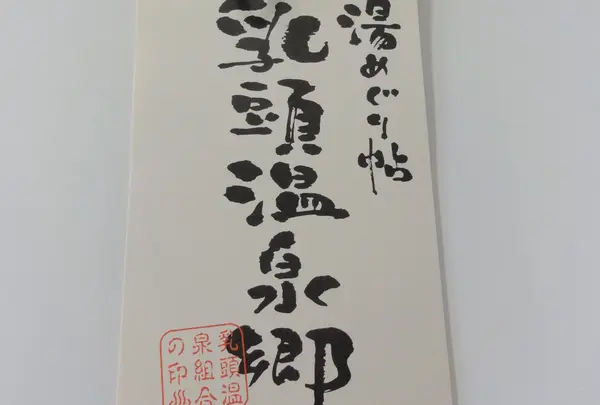 湯めぐり帖
乳頭温泉郷
乳頭温
泉組合
の印